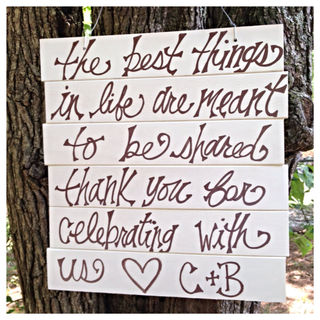 the best things
in life are meant
to be shared
thank you for
celebrating with
us ♡ C+B